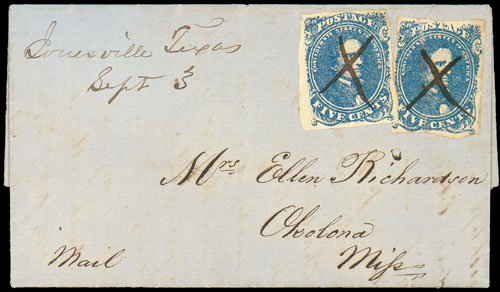 Jonesville Texas
Sept 3
POSTAGE
CONFEDERATE STATES OF AMERICA
FIVE CENTS
POSTAGE
CONFEDERATE STATES OF AMERICA
FIVE CENTS
Mrs Ellen Richardson
Okolona
Miss
Mail